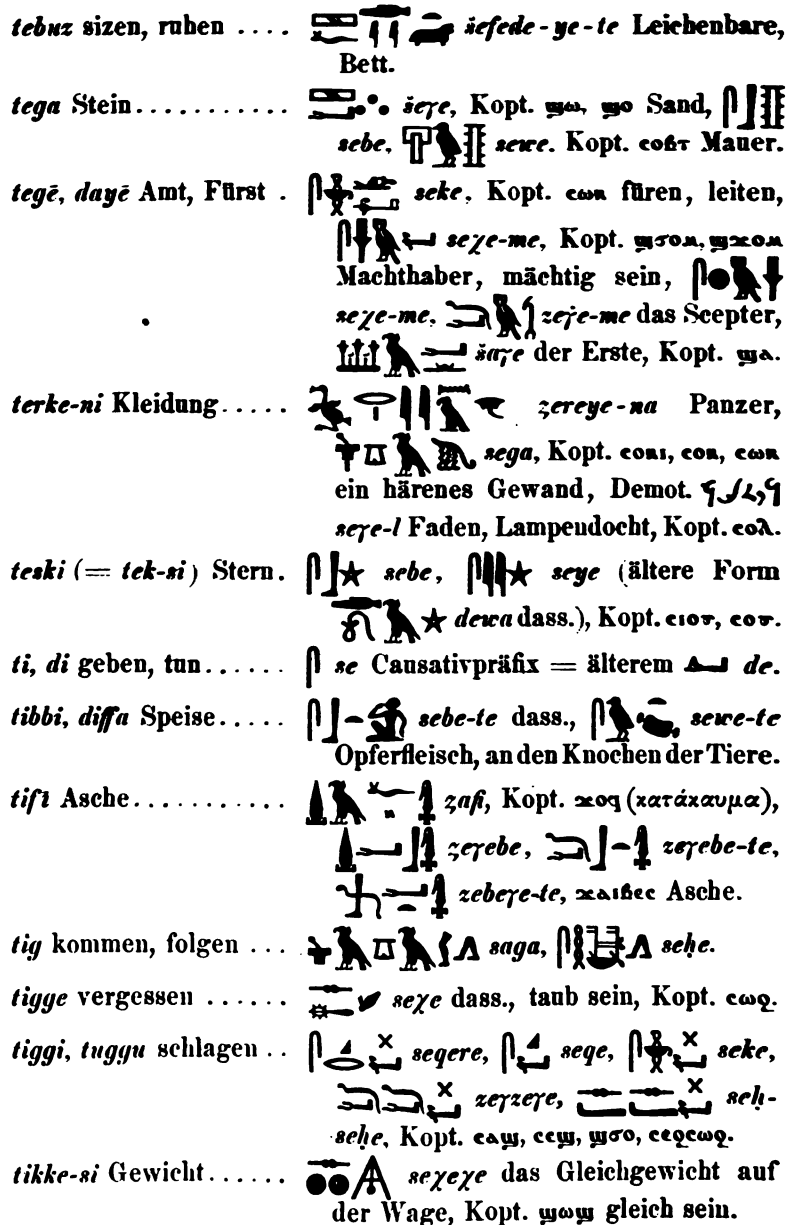 tebuz sizen, ruhen .... šefede-ye-te Leichenbare,
Bett.
tega Stein........... šeɤe, Kopt. ϣω, ϣο Sand,
sebe, sewe. Kopt. ⲥⲟⲃⲧ Mauer.
tegē, dayē Amt, Fürst . seke, Kopt. ⲥⲱⲕ füren, leiten,
seχe-me, Kopt. ϣϭⲟⲙ, ϣϫⲟⲙ
Machthaber, mächtig sein,
seχe-me, das Scepter,
šaɤe der Erste, Kopt. ϣⲁ.
terke-ni Kleidung..... zereye-na Panzer,
sega, Kopt. ⲥⲟⲕⲓ, ⲥⲟⲕ, ⲥⲱⲕ
ein härenes Gewand, Demot.
seɤe-l Faden, Lampendocht, Kopt. ⲥⲟⲗ.
teski (= tek-si) Stern. sebe, seye (ältere Form
dewa dass.), Kopt. ⲥⲓⲟⲩ, ⲥⲟⲩ.
ti, di geben, tun...... se Causativpräfix = älterem de.
tibbi, diffa Speise..... sebe-te dass., sewe-te
Opferfleisch, an den Knochen der Tiere.
tifī Asche........... zafi, Kopt. ϫⲟϥ (κατάκαυμα),
zeɤebe, zeɤebe-te,
zebeɤe-te, ϫⲁⲓⲃⲉⲥ Asche.
tig kommen, folgen ... saga, seḥe.
tigge vergessen ...... seχe dass., taub sein, Kopt. ⲥⲱϩ.
tiggi, tuggu schlagen .. seqere, seqe, seke,
zeɤzeɤe, seḥ-
seḥe, Kopt. ⲥⲁϣ, ⲥⲉϣ, ϣϭⲟ, ⲥⲉϩⲥⲱϩ.
tikke-si Gewicht...... seχeχe das Gleichgewicht auf
der Wage, Kopt. ϣⲱϣ gleich sein.